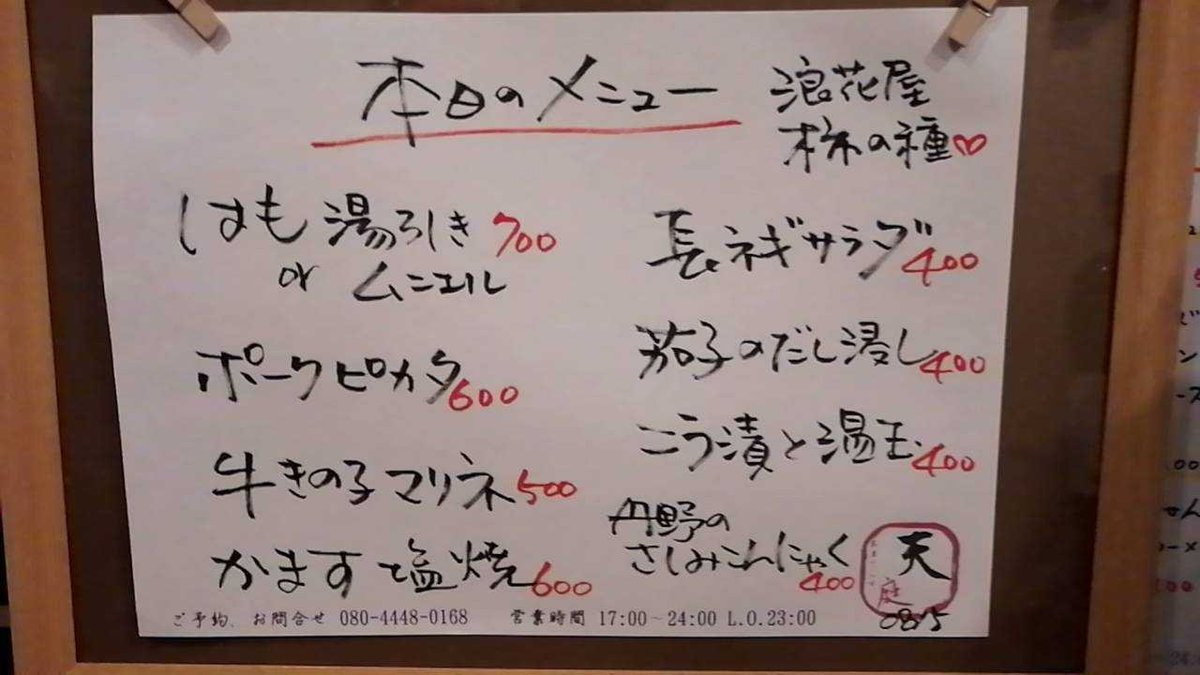 本日のメニュー
浪花屋
柿の種♡
はも湯引き 700
or ムニエル
ポークピカタ 600
牛きの子マリネ 500
かます塩焼 600
長ネギサラダ 400
茄子のだし浸し 400
こう漬と温玉 400
丹野の
さしみこんにゃく 400
天
庭
0815
ご予約、お問合せ 080-4448-0168 営業時間 17:00～24:00 L.O.23:00